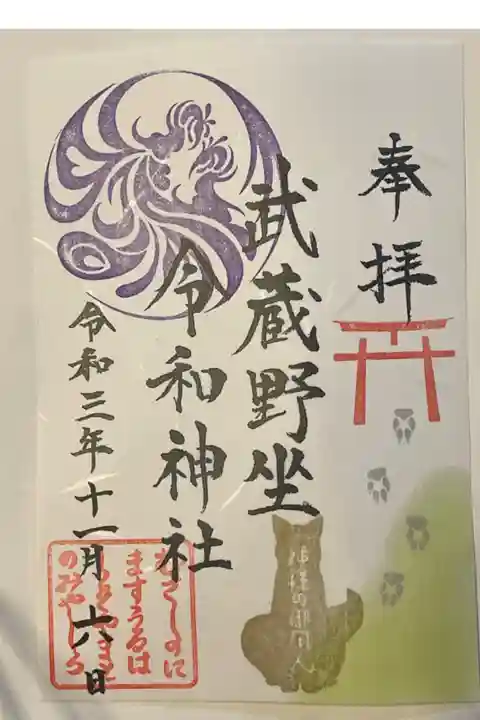 奉拝
武蔵野坐
令和神社
令和三年十一月六日
むさしのに
ますうるは
しきやまと
のみやしろ